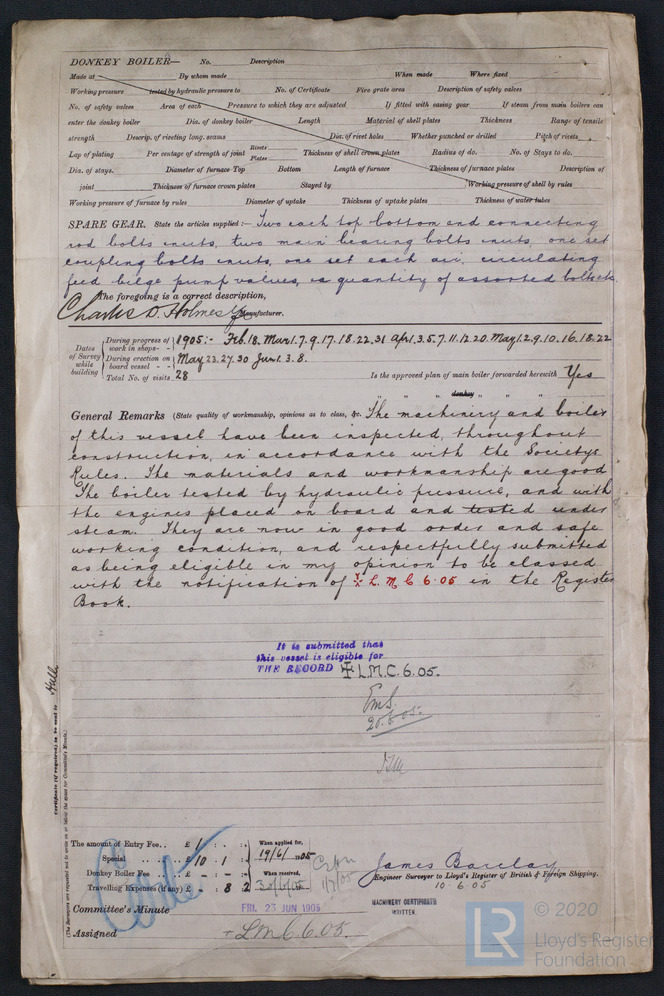 DONKEY BOILER— No. Description
Made at By whom made When made Where fixed
Working pressure tested by hydraulic pressure to No. of Certificate Fire grate area Description of safety valves
No. of safety valves Area of each Pressure to which they are adjusted If fitted with easing gear If steam from main boilers can
enter the donkey boiler Dia. of donkey boiler Length Material of shell plates Thickness Range of tensile
strength Descrip. of riveting long. seams Dia. of rivet holes Whether punched or drilled Pitch of rivets
Lap of plating Per centage of strength of joint Rivets Plates Thickness of shell crown plates Radius of do. No. of Stays to do.
Dia. of stays. Diameter of furnace Top Bottom Length of furnace Thickness of furnace plates Description of
joint Thickness of furnace crown plates Stayed by Working pressure of shell by rules
Working pressure of furnace by rules Diameter of uptake Thickness of uptake plates Thickness of water tubes
SPARE GEAR. State the articles supplied:— Two each top bottom and connecting
rod bolts & nuts, two main bearing bolts & nuts, one set
coupling bolts & nuts, one set each air, circulating
feed bilge pump valves, a quantity of assorted bolts etc.
The foregoing is a correct description,
Charles D. Holmes & Co Manufacturer.
Dates of Survey while building
During progress of work in shops- - 1905:- Feb. 18. Mar 1. 7. 9. 17. 18. 22. 31 Apr 1. 3. 5. 7. 11. 12. 20. May 1. 2. 9. 10. 16. 18. 22
During erection on board vessel - - May 23. 27. 30 Jun 1. 3. 8.
Total No. of visits 28
Is the approved plan of main boiler forwarded herewith Yes
" " donkey " " "
General Remarks (State quality of workmanship, opinions as to class, &c. The machinery and boiler
of this vessel have been inspected, throughout
construction, in accordance with the Society's
Rules. The materials and workmanship are good
The boiler tested by hydraulic pressure, and with
the engines placed on board and tested under
steam. They are now in good order and safe
working condition, and respectfully submitted
as being eligible in my opinion to be classed
with the notification of ✠ L.M.C 6.05 in the Register
Book.
It is submitted that
this vessel is eligible for
THE RECORD ✠ L.M.C. 6.05.
20.6.05.
Certificate (if required) to be sent to Hull
(The Surveyors are requested not to write on or below the space for Committee's Minute.)
The amount of Entry Fee.. £ 1 : :
Special .. .. £ 10 : 1 :
Donkey Boiler Fee .. £ - : - :
Travelling Expenses (if any) £ - : 8 : 2
When applied for, 19/6/1905
When received,
James Barclay
Engineer Surveyor to Lloyd's Register of British & Foreign Shipping.
10.6.05
Committee's Minute FRI. 23 JUN 1905
Assigned + LMC 6.05.
MACHINERY CERTIFICATE
WRITTEN.
LR © 2020
Lloyd's Register
Foundation